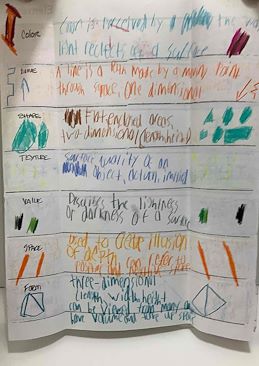 Color
Color is perceived by the way
light reflects off a surface
LINE
A line is a path made by a moving point
through space, one dimensional
SHAPE
Flat enclosed areas,
two-dimensional
TEXTURE
Surface quality of an
object, actual, implied
VALUE
Describes the lightness
or darkness of a surface
SPACE
used to create illusion
of depth
can refer to
FORM
three-dimensional
(length width height
can be viewed from many
have volume and take up space